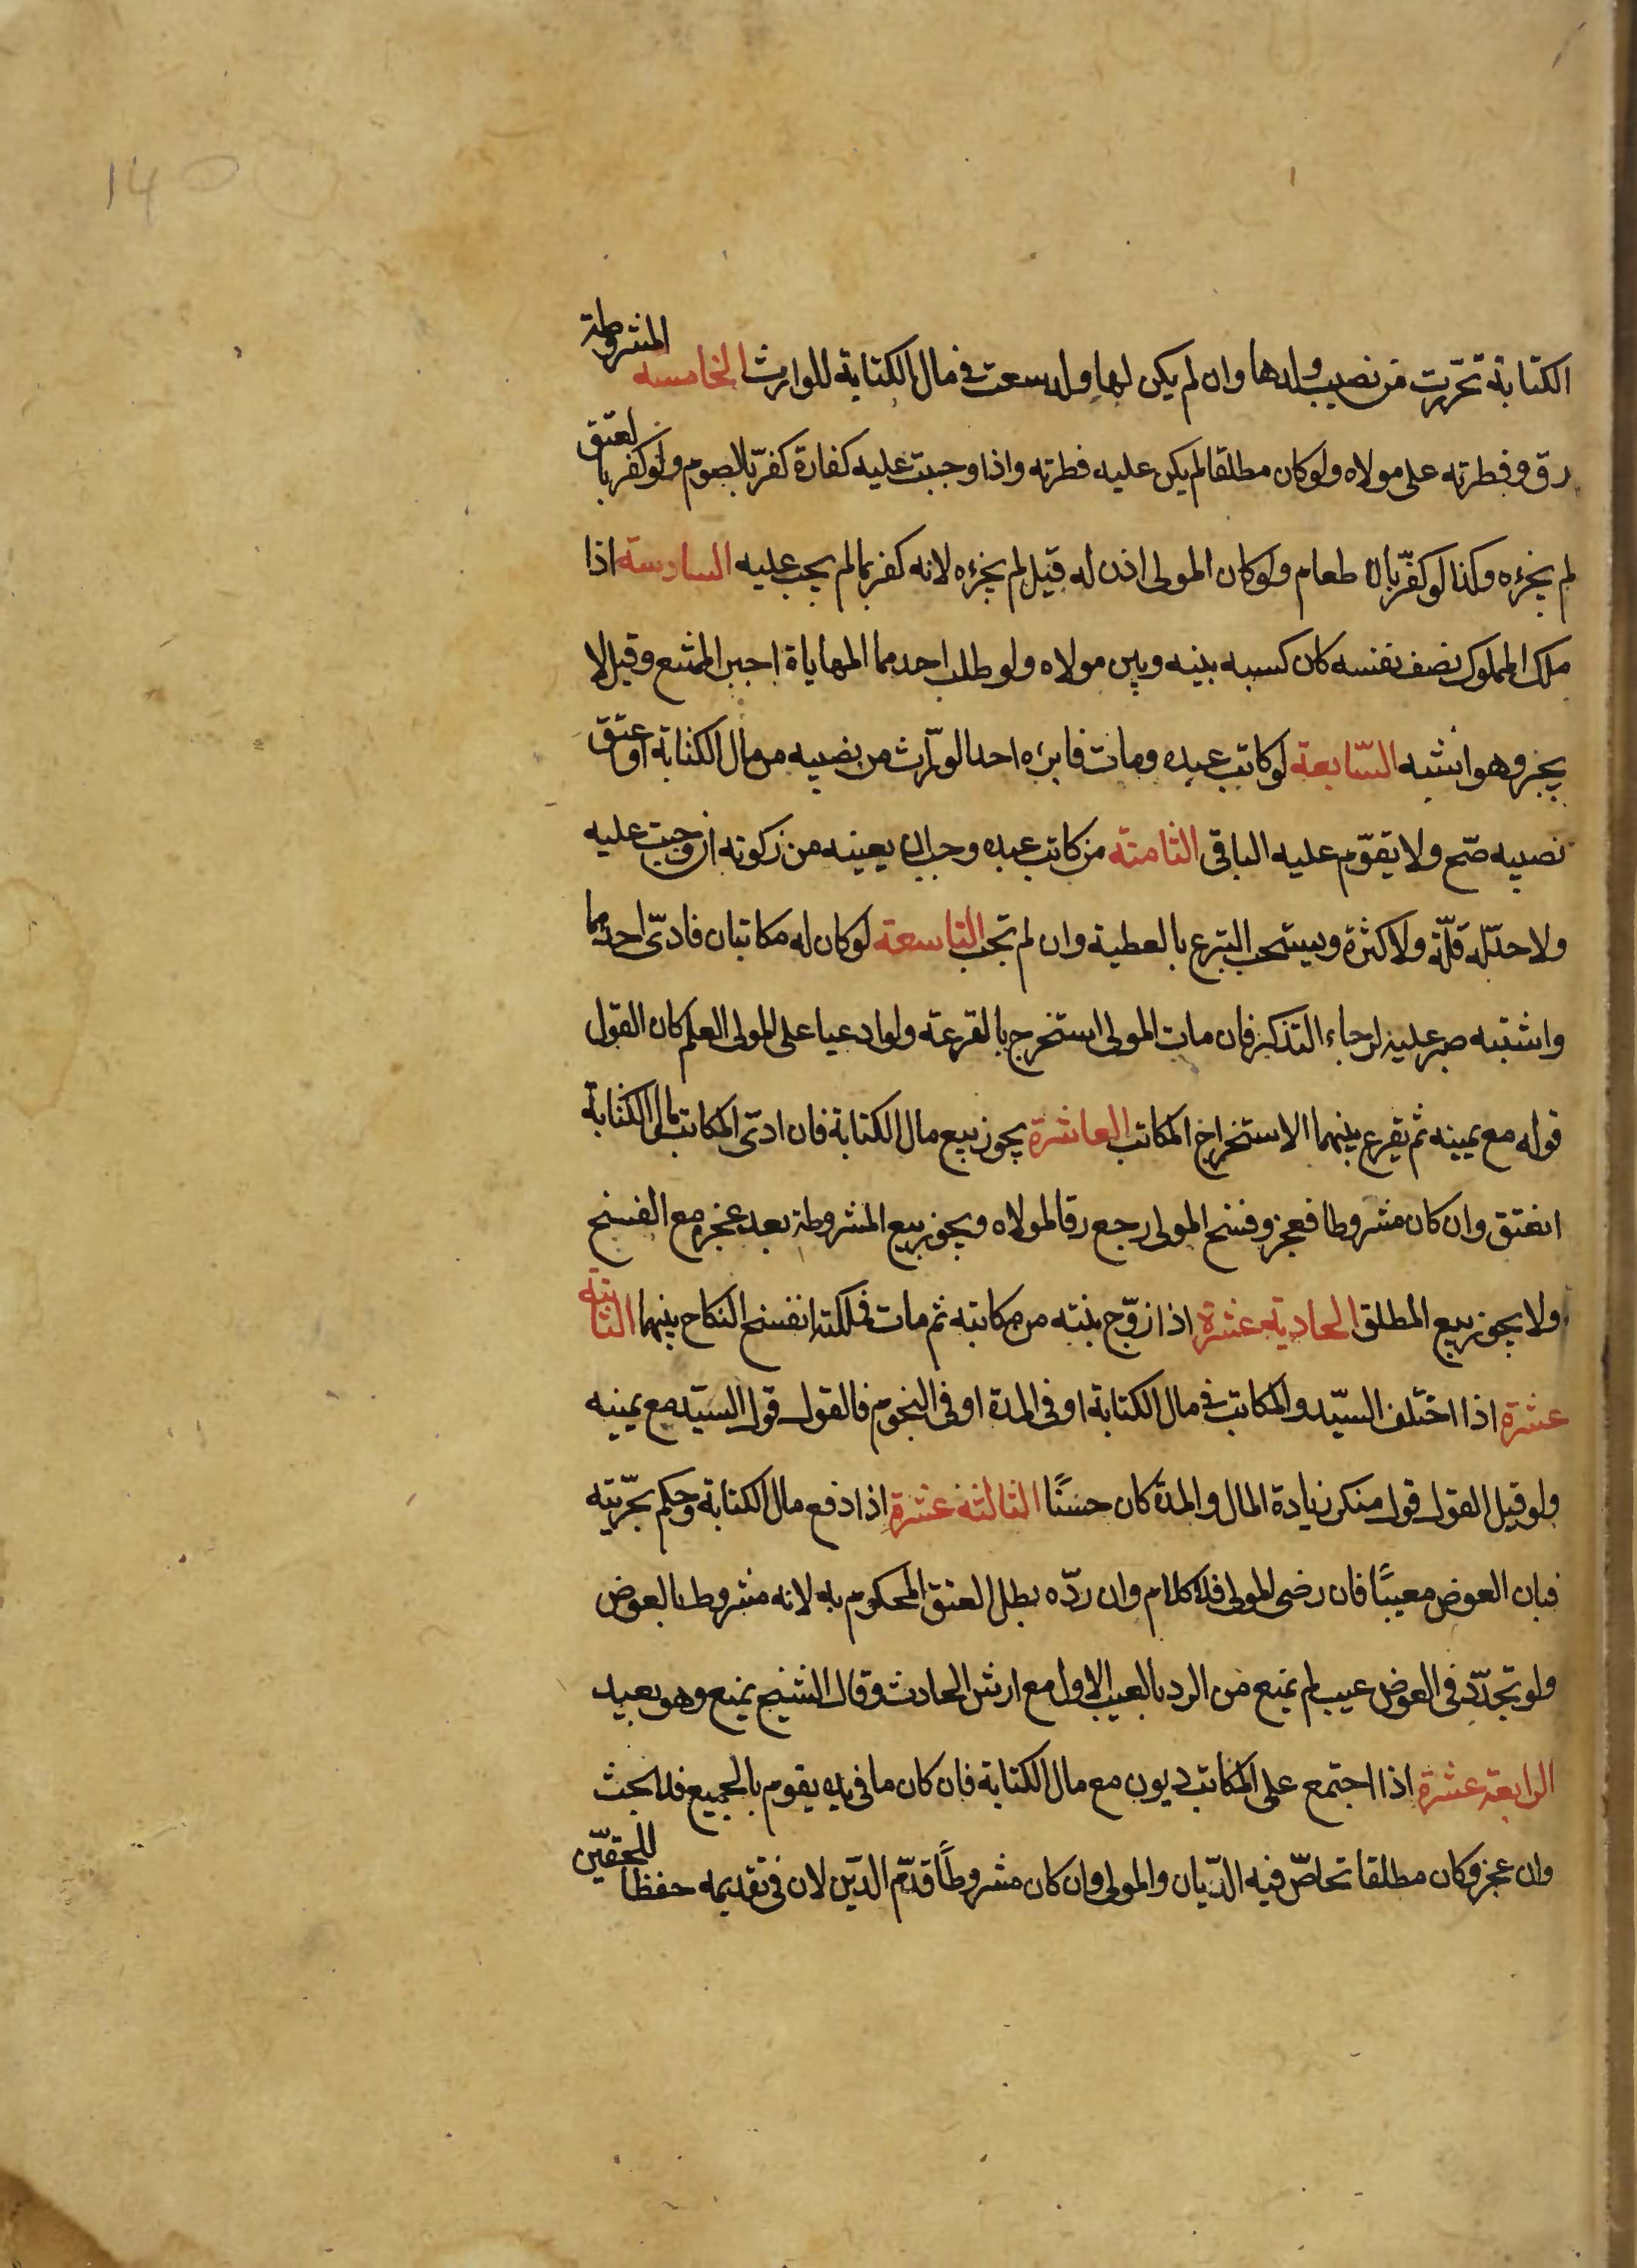 140
الكتابة تحررت من نصيب ولدها وان لم يكن لها ولد سعت فى مال الكتابة للوارث الخامسة المشروطة
رق وفطرته على مولاه ولو كان مطلقا لم يكن عليه فطرته واذا وجبت عليه كفارة كفّر بالصوم ولو كفر بالعتق
لم يجزءه وكذا لو كفّر بالاطعام ولو كان المولى اذن له قيل لم يجزءه لانه كفر بما لم يجب عليه السادسة اذا
ملك المملوك نصف نفسه كان كسبه بينه وبين مولاه ولو طلب احدهما المهاياة اجبر الممتنع وقيل لا
يجبر وهو اشبه السّابعة لو كاتب عبده ومات فابرءه احد الورّاث من نصيبه من مال الكتابة او عتق
نصيبه صّح ولا يقوّم عليه الباقى الثامنة من كاتب عبده وجب ان يعينه من زكوته ان وجبت عليه
ولا حدّ له قلّة ولا كثرة ويستحب التبرع بالعطية وان لم تجب التاسعة لو كان له مكاتبان فادّى احدهما
واشتبه صبر عليه لرجاء التذكر فان مات المولى استخرج بالقرعة ولو ادعيا على المولى العلم كان القول
قوله مع يمينه ثم يقرع بينهما الاستخراج المكاتب العاشرة يجوز بيع مال الكتابة فان ادّى المكاتب مال الكتابة
انعتق وان كان مشروطا فعجز وفسخ المولى رجع رقا لمولاه ويجوز بيع المشروطة بعد عجزه مع الفسخ
ولا يجوز بيع المطلق الحادية عشرة اذا زوّج بنته من مكاتبه ثم مات فملكته انفسخ النكاح بينهما الثانية
عشرة اذا اختلف السيّد والمكاتب فى مال الكتابة او فى المدة او فى النجوم فالقول قول السيّد مع يمينه
ولو قيل القول قول منكر زيادة المال والمدة كان حسنًا الثالثة عشرة اذا دفع مال الكتابة وحكم بحّريته
فبان العوض معيبًا فان رضى المولى فلا كلام وان ردّه بطل العتق المحكوم به لانه مشروط بالعوض
ولو تجدّد فى العوض عيب لم يمنع من الرد بالعيب الاول مع ارش الحادث وقال الشيخ يمنع وهو بعيد
الرابعة عشرة اذا اجتمع على المكاتب ديون مع مال الكتابة فان كان ما فى يده يقوم بالجميع فلا بحث
وان عجز وكان مطلقا تحاصّ فيه الدّيان والمولى وان كان مشروطًا قدّم الدّين لان فى تقديمه حفظا للحقّين